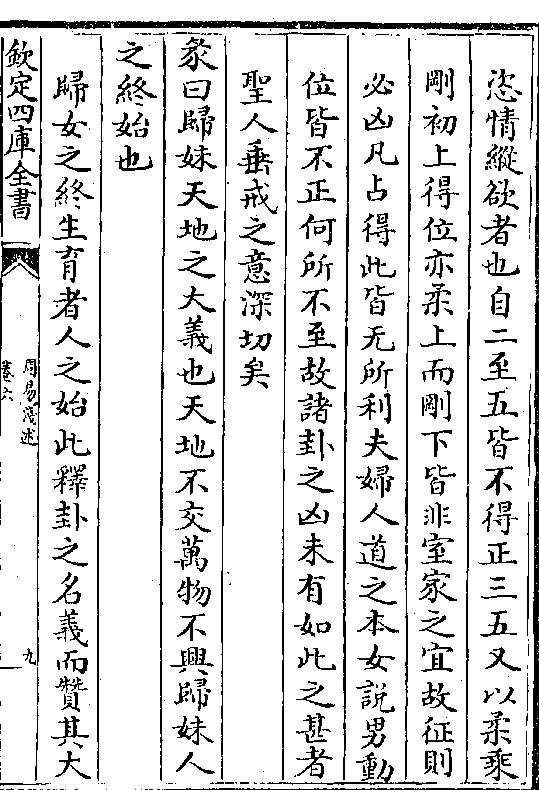 恣情縱欲者也自二至五皆不得正三五又以柔乘
剛初上得位亦柔上而剛下皆非室家之宜故征則
必凶凡占得此皆无所利夫婦人道之本女説男動
位皆不正何所不至故諸卦之凶未有如此之甚者
聖人垂戒之意深切矣
彖曰歸妹天地之大義也天地不交萬物不興歸妹人
之終始也
歸女之終生育者人之始此釋卦之名義而贊其大
欽定四庫全書
周易淺述
卷六
九